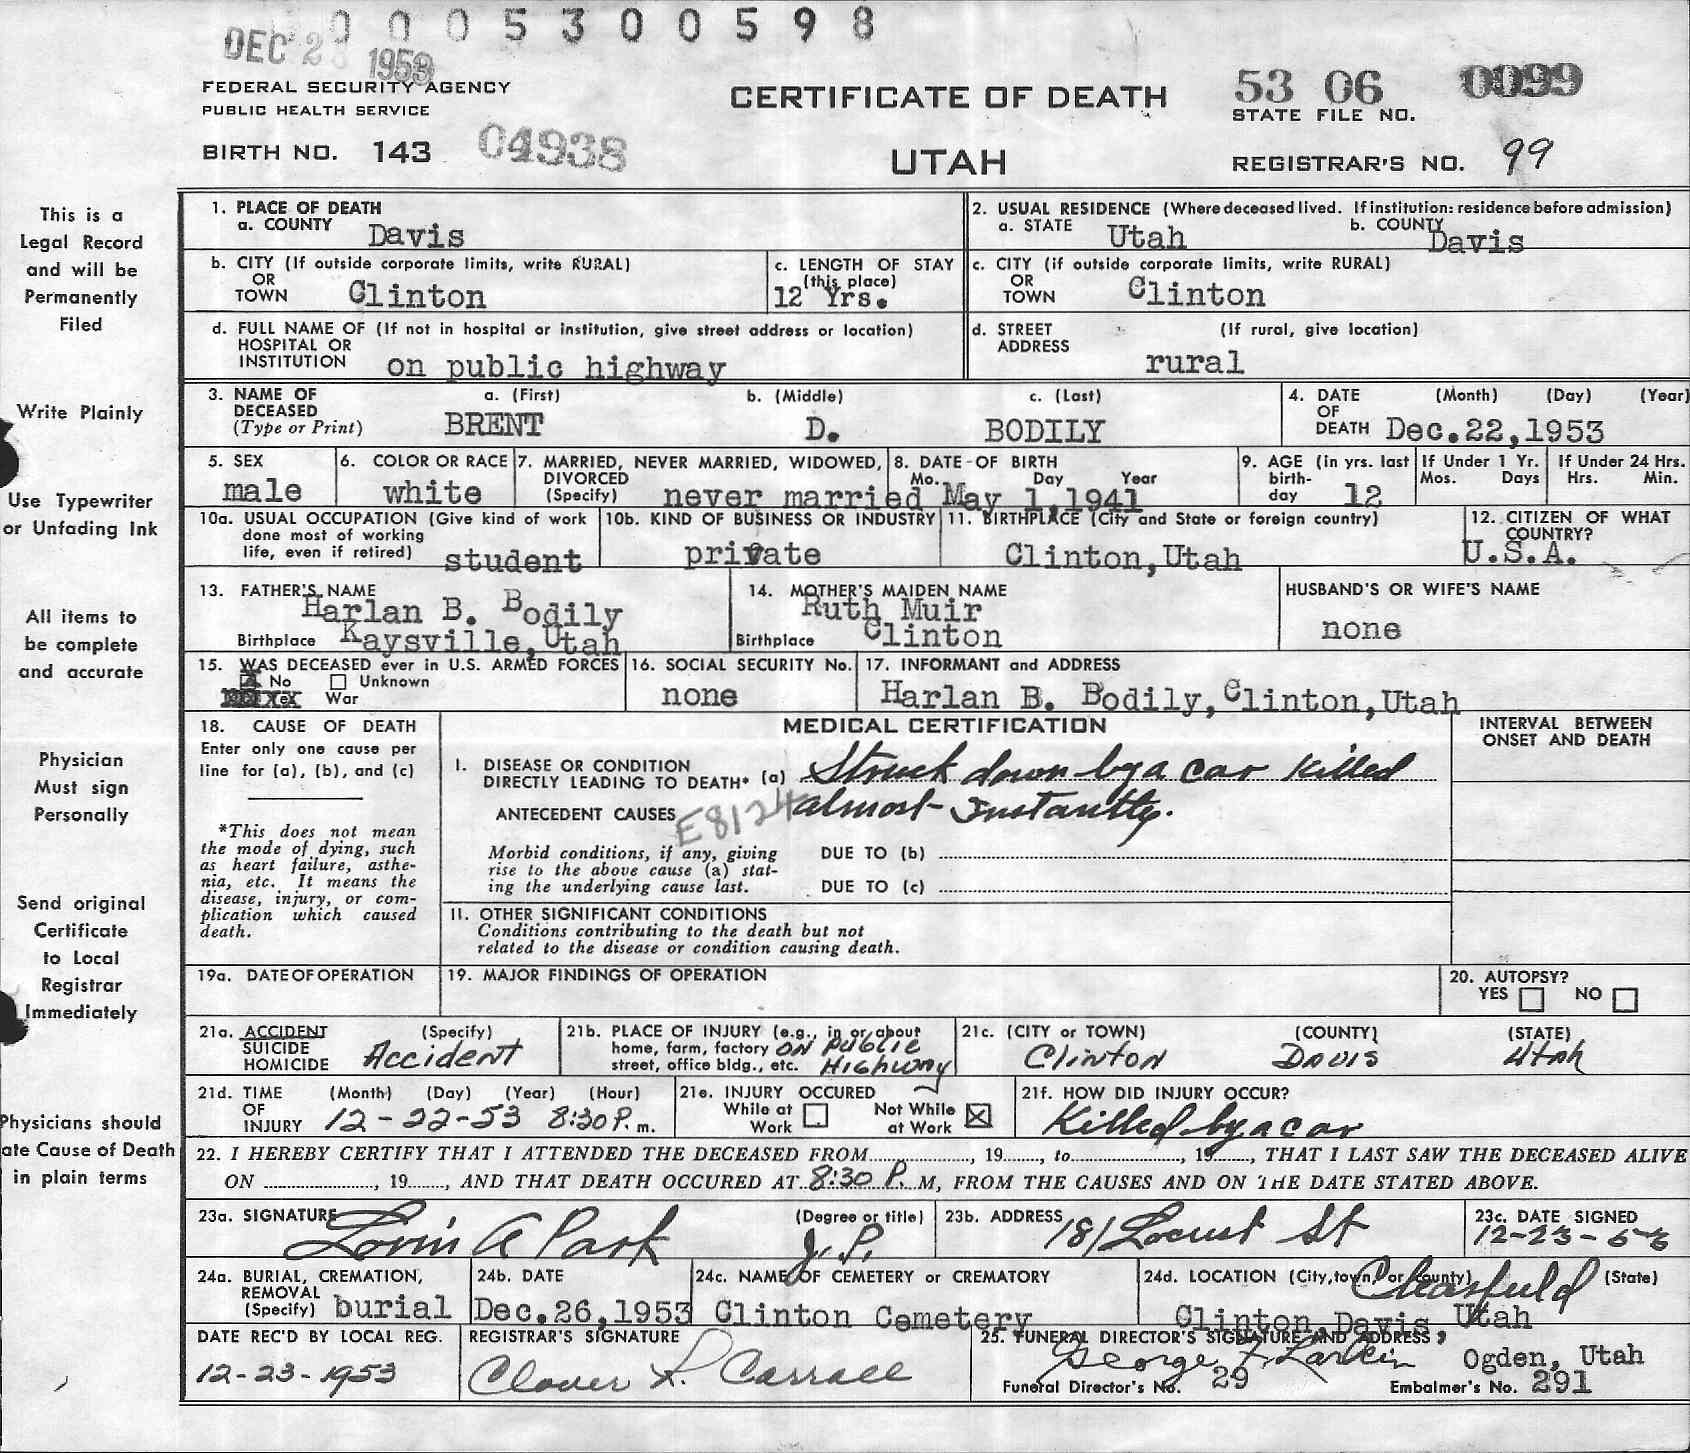 0005300598
DEC 2 1953
FEDERAL SECURITY AGENCY
PUBLIC HEALTH SERVICE
BIRTH NO. 143 04938
CERTIFICATE OF DEATH
UTAH
53 06 0099
STATE FILE NO.
REGISTRAR'S NO. 99
This is a
Legal Record
and will be
Permanently
Filed
Write Plainly
Use Typewriter
or Unfading Ink
All items to
be complete
and accurate
Physician
Must sign
Personally
Send original
Certificate
to Local
Registrar
Immediately
Physicians should
ate Cause of Death
in plain terms
1. PLACE OF DEATH
a. COUNTY Davis
2. USUAL RESIDENCE (Where deceased lived. If institution: residence before admission)
a. STATE Utah b. COUNTY Davis
b. CITY (If outside corporate limits, write RURAL)
OR
TOWN Clinton
c. LENGTH OF STAY
(this place)
12 Yrs.
c. CITY (if outside corporate limits, write RURAL)
OR
TOWN Clinton
d. FULL NAME OF (If not in hospital or institution, give street address or location)
HOSPITAL OR
INSTITUTION on public highway
d. STREET (If rural, give location)
ADDRESS rural
3. NAME OF a. (First) b. (Middle) c. (Last)
DECEASED
(Type or Print) BRENT D. BODILY
4. DATE (Month) (Day) (Year)
OF
DEATH Dec.22,1953
5. SEX
male
6. COLOR OR RACE
white
7. MARRIED, NEVER MARRIED, WIDOWED,
DIVORCED
(Specify) never married
8. DATE OF BIRTH
Mo. Day Year
May 1,1941
9. AGE (in yrs. last
birth-
day 12
If Under 1 Yr.
Mos. Days
If Under 24 Hrs.
Hrs. Min.
10a. USUAL OCCUPATION (Give kind of work
done most of working
life, even if retired) student
10b. KIND OF BUSINESS OR INDUSTRY
private
11. BIRTHPLACE (City and State or foreign country)
Clinton,Utah
12. CITIZEN OF WHAT
COUNTRY?
U.S.A.
13. FATHER'S NAME
Harlan B. Bodily
Birthplace Kaysville,Utah
14. MOTHER'S MAIDEN NAME
Ruth Muir
Birthplace Clinton
HUSBAND'S OR WIFE'S NAME
none
15. WAS DECEASED ever in U.S. ARMED FORCES
No Unknown
War
16. SOCIAL SECURITY No.
none
17. INFORMANT and ADDRESS
Harlan B. Bodily,Clinton,Utah
18. CAUSE OF DEATH
Enter only one cause per
line for (a), (b), and (c)
*This does not mean
the mode of dying, such
as heart failure, asthe-
nia, etc. It means the
disease, injury, or com-
plication which caused
death.
MEDICAL CERTIFICATION
INTERVAL BETWEEN
ONSET AND DEATH
I. DISEASE OR CONDITION
DIRECTLY LEADING TO DEATH* (a) Struck down by a car killed
ANTECEDENT CAUSES E8124 almost instantly.
Morbid conditions, if any, giving
rise to the above cause (a) stat-
ing the underlying cause last.
DUE TO (b)
DUE TO (c)
II. OTHER SIGNIFICANT CONDITIONS
Conditions contributing to the death but not
related to the disease or condition causing death.
19a. DATE OF OPERATION
19. MAJOR FINDINGS OF OPERATION
20. AUTOPSY?
YES NO
21a. ACCIDENT (Specify)
SUICIDE
HOMICIDE Accident
21b. PLACE OF INJURY (e.g., in or about
home, farm, factory
street, office bldg., etc. ON PUBLIC
Highway
21c. (CITY or TOWN) (COUNTY) (STATE)
Clinton DAVIS Utah
21d. TIME (Month) (Day) (Year) (Hour)
OF
INJURY 12-22-53 8:30 P. m.
21e. INJURY OCCURED
While at Work Not While at Work
21f. HOW DID INJURY OCCUR?
Killed by a car
22. I HEREBY CERTIFY THAT I ATTENDED THE DECEASED FROM..., 19..., to..., 19..., THAT I LAST SAW THE DECEASED ALIVE
ON ..., 19..., AND THAT DEATH OCCURED AT 8:30 P. M, FROM THE CAUSES AND ON THE DATE STATED ABOVE.
23a. SIGNATURE (Degree or title)
Lorin A Park J.P.
23b. ADDRESS
181 Locust St
Clearfield
23c. DATE SIGNED
12-23-53
24a. BURIAL, CREMATION,
REMOVAL
(Specify) burial
24b. DATE
Dec.26,1953
24c. NAME OF CEMETERY or CREMATORY
Clinton Cemetery
24d. LOCATION (City,town, or county) (State)
Clinton,Davis Utah
DATE REC'D BY LOCAL REG.
12-23-1953
REGISTRAR'S SIGNATURE
25. FUNERAL DIRECTOR'S SIGNATURE AND ADDRESS,
George F Larkin Ogden, Utah
Funeral Director's No. 29 Embalmer's No. 291